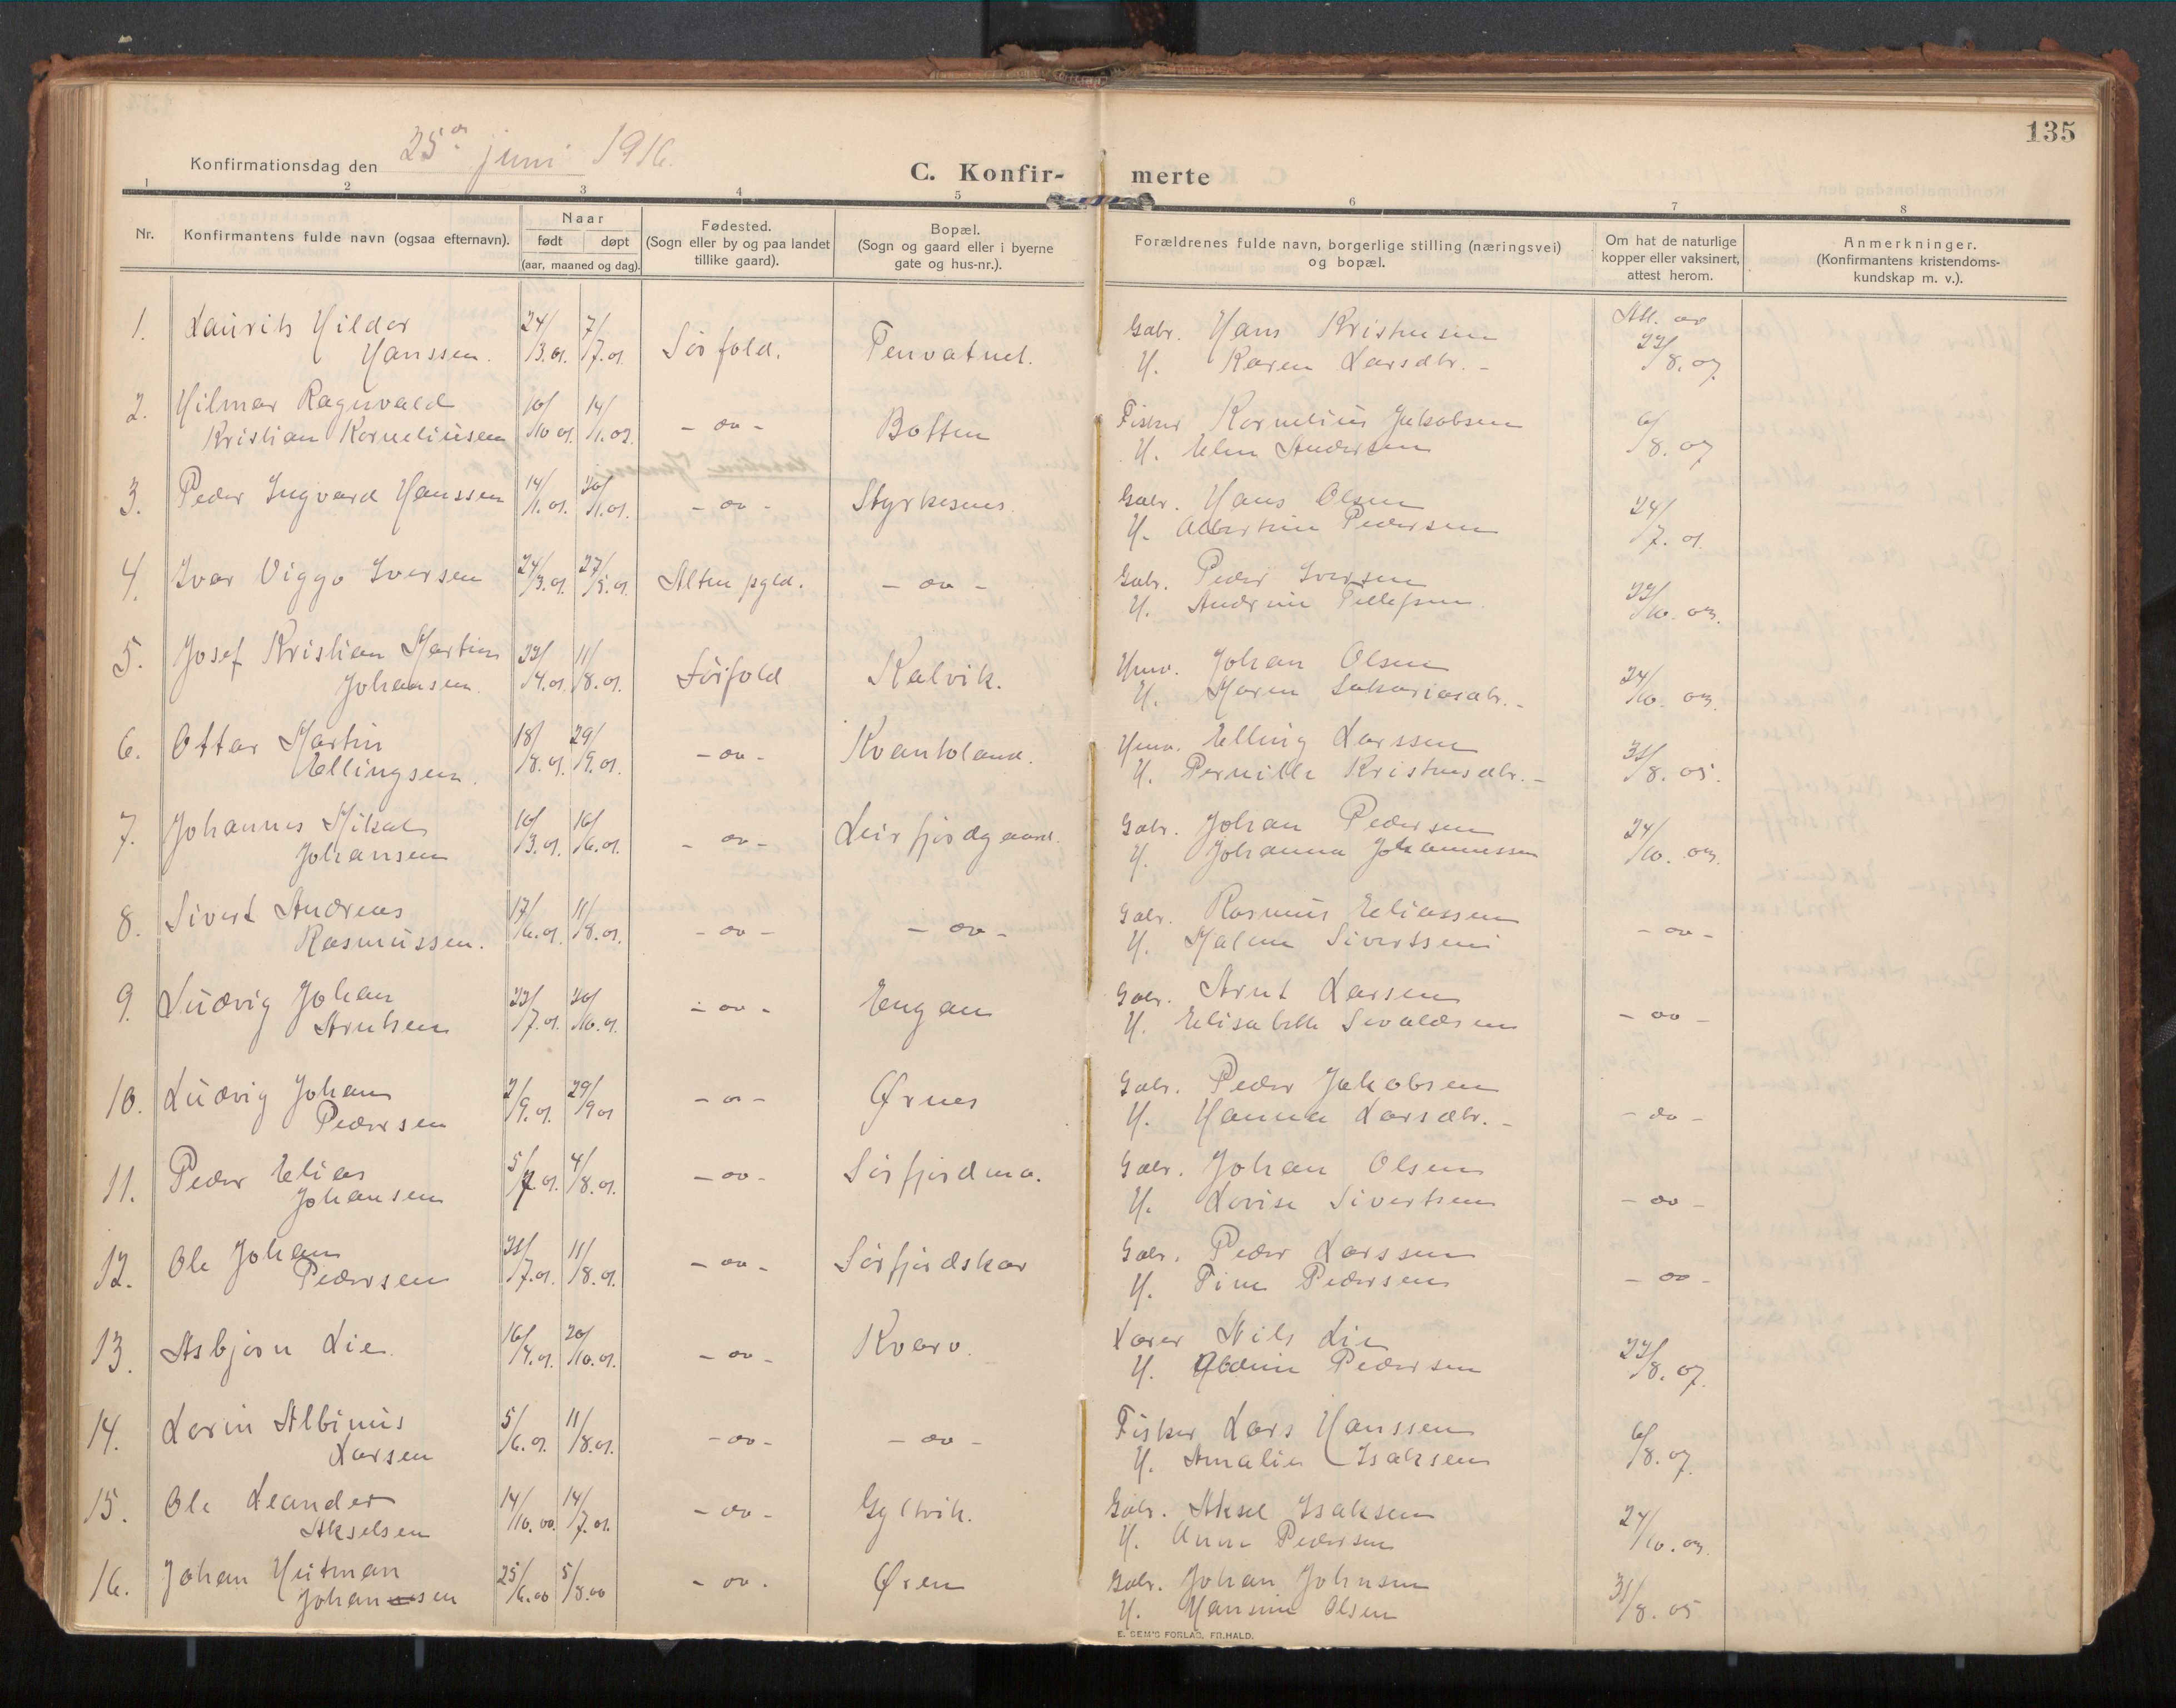 135
Konfirmationsdag den 25de juni 1916.
C. Konfir- merte
1 2 3 4 5 6 7 8
Nr.
Konfirmantens fulde navn (ogsaa efternavn).
Naar
født døpt
(aar, maaned og dag).
Fødested.
(Sogn eller by og paa landet
tillike gaard).
Bopæl.
(Sogn og gaard eller i byerne
gate og hus-nr.).
Forældrenes fulde navn, borgerlige stilling (næringsvei)
og bopæl.
Om hat de naturlige
kopper eller vaksinert,
attest herom.
Anmerkninger.
(Konfirmantens kristendoms-
kundskap m. v.).
1. Laurits Hildor 24/ 7/ Gbr. Hans Kristensen Att. av
Hanssen. /3.01. /7.01 Sørfold. Tenvatnet. H. Karen Larsdtr. - 23/8.07.
2. Hilmar Ragnvald 10/ 14/ Fisker Kornelius Jakobsen 6/
Kristian Korneliussen /10 01. /1.02. - do - Botten H. Elen Andersen /8.07
3. Peder Ingvard Hanssen 14/1.01. 20/1.01. - do - Styrkesnes Gbr. Hans Olsen 24/
H. Albertine Pedersen /7.01.
4. Ivar Viggo Iversen 24/3.01. 27/5.01. Alten pgld. - do - Gbr. Peder Iversen
H. Andrine Tellefsen 23/10.03.
5. Josef Kristian Martin 23/ 11/ Johan Olsen
Johansen. /4.01. /8.01. Sørfold Kalvik. H. Maren Sakariasdtr. - 24/10.03.
6. Ottar Martin 18/ 29/ Elling Larssen 31/
Ellingsen. /8.01. /9.01. - do - Kvantoland. H. Pernille Kristensdtr. - /8.05.
7. Johannes Mikal 10/ 16/ Leirfjordgaard. Gbr. Johan Pedersen 24/
Johansen /3.01. /6.01. - do - H. Johanna Johannessen /10.03.
8. Sivert Andreas 17/ 11/ Gbr. Rasmus Eliassen
Rasmussen. /6.01. /8.01. - do - - do - H. Malene Sivertsen - do -
9. Ludvig Johan 23/ 20/ Engan Gbr. Arnt Larsen
Arntsen /7.01. /10.01. - do - H. Elisabeth Sevaldsen - do -
10. Ludvig Johan 2/ 29/ Ørnes Gbr. Peder Jakobsen
Pedersen /9.01. /9 01 - do - H. Hanna Larsdtr. - - do -
11. Peder Elias 5/ 4/ Sørfjordmo. Gbr. Johan Olsen
Johansen /7 01. /8.01. - do - H. Lovise Sivertsen - do -
12. Ole Johan 31/ 11/ Sørfjordskar Gbr. Peder Larssen
Pedersen /7.01. /8.01. - do - H. Tine Pedersen - do -
13. Asbjørn Lie. 16/4.01. 20/10.01. - do - Kvarv. Lærer Nils Lie 23/
H. Pedersen /8.07.
14. Lorin Albinus 5/ 11/ Fisker Lars Hanssen 6/
Larsen /6.01. /8.01. - do - - do - H. Amalie Isaksen /8.07.
15. Ole Leander 14/ 14/ Gyltvik. Gbr. Aksel Isaksen 24/
Akselsen /10.00. /7.01. - do - H. Anne Pedersen /10.03.
16. Johan Hitman 25/ 5/ Øren Gbr. Johan Johnsen 31/
Johansen /6.00 /8.00 - do - H. Hansine Olsen /8.05
E. SEM'S FORLAG, FR.HALD.